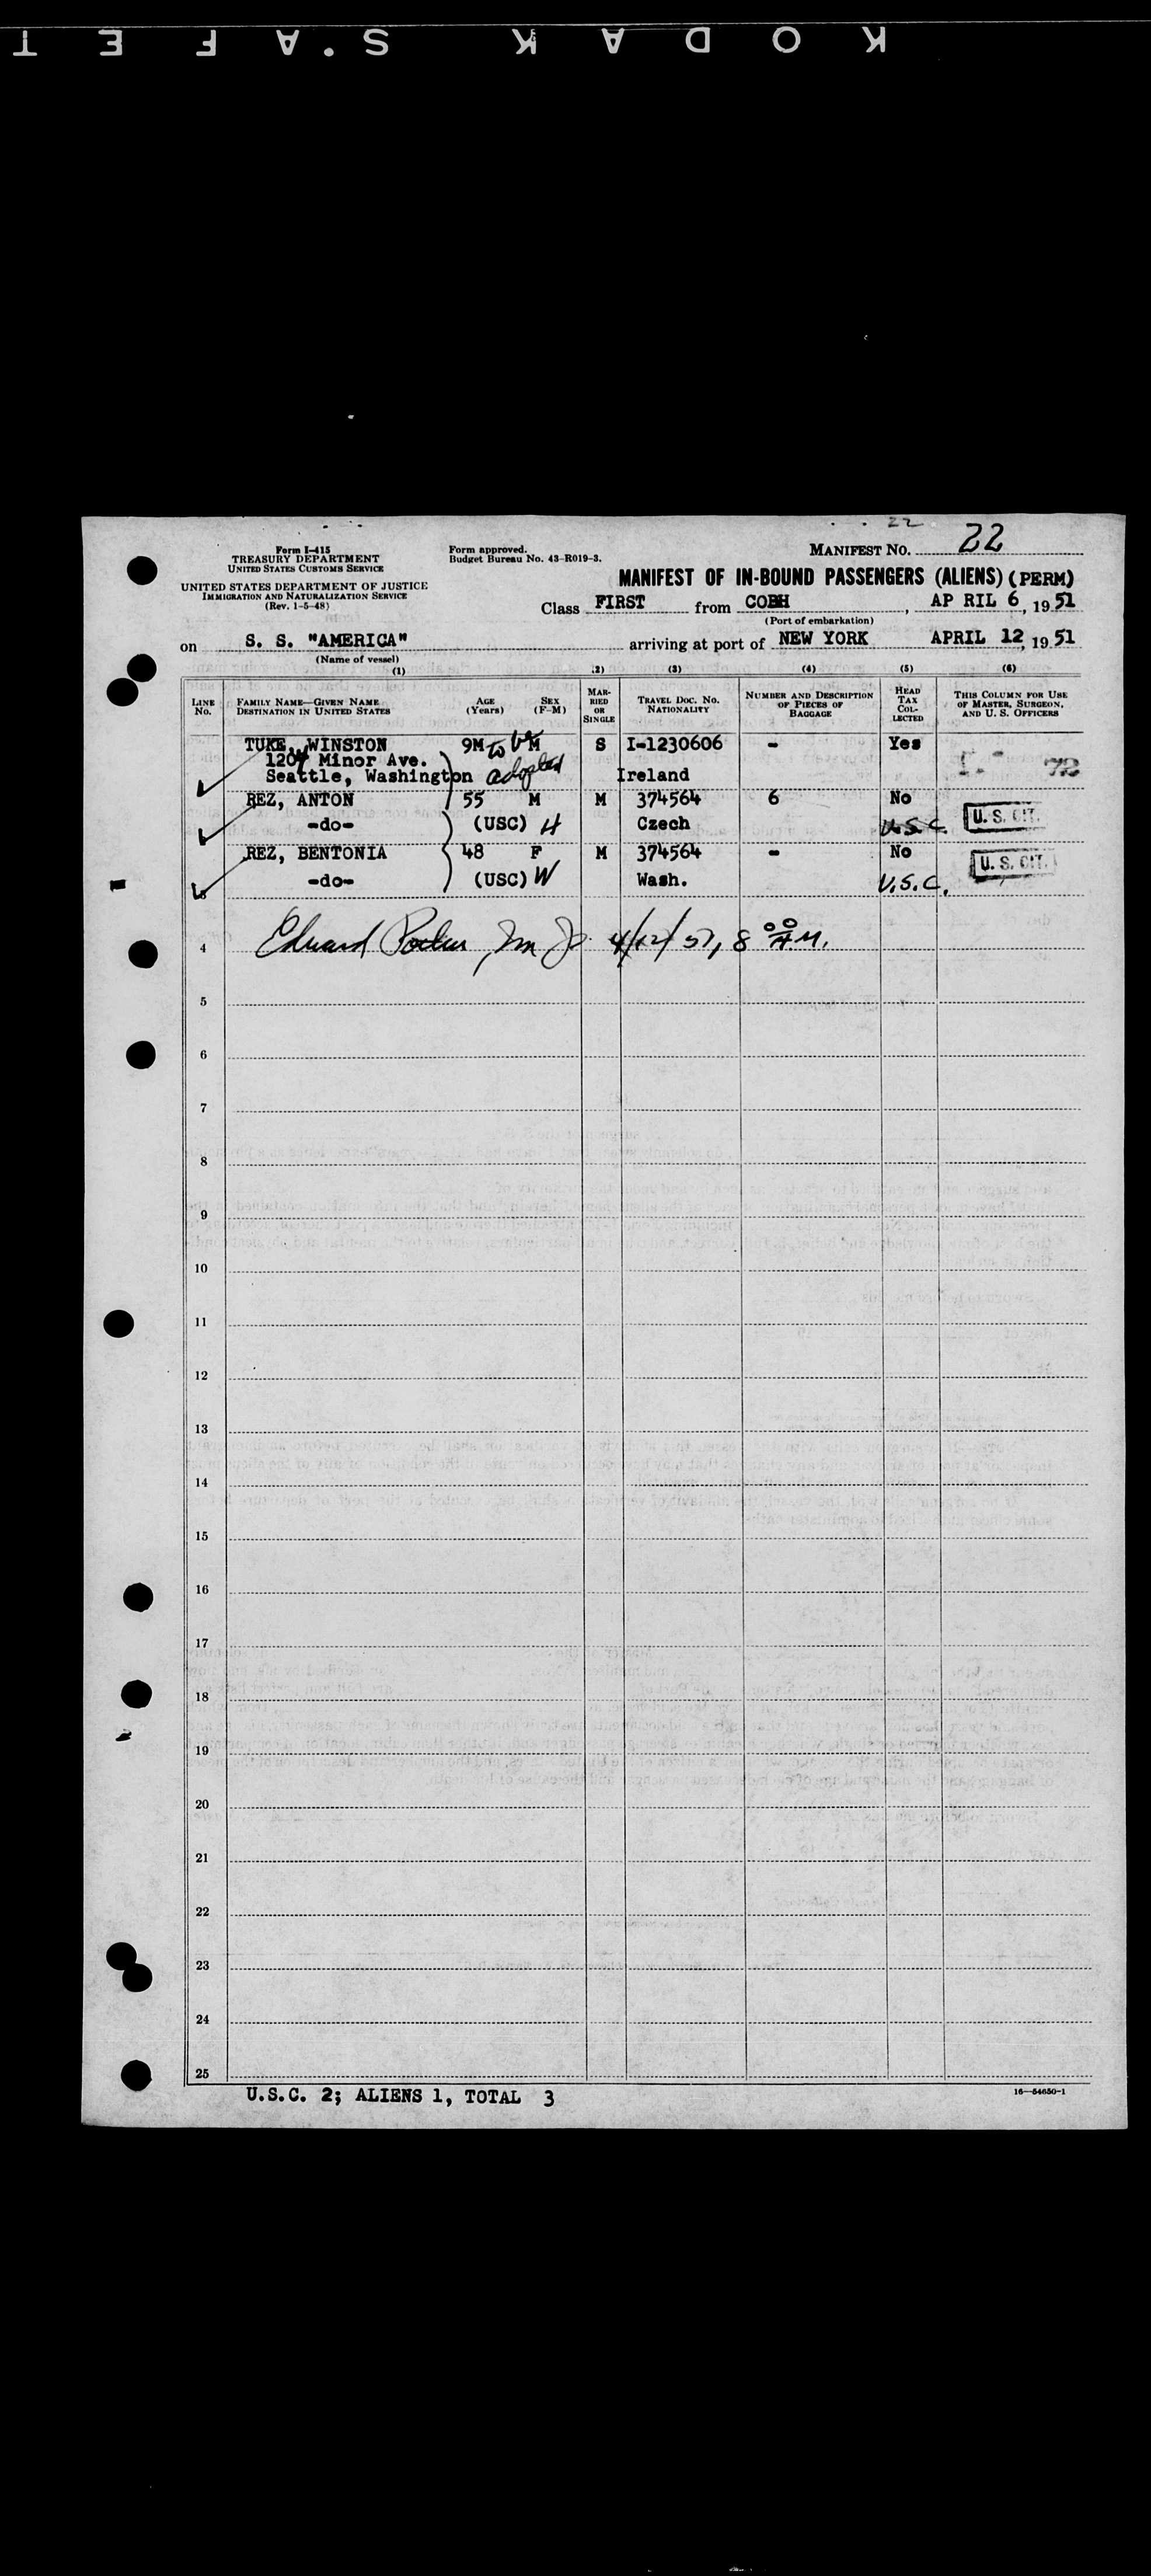 KODAK S.A F E T
22
Form I-415
TREASURY DEPARTMENT
UNITED STATES CUSTOMS SERVICE
UNITED STATES DEPARTMENT OF JUSTICE
IMMIGRATION AND NATURALIZATION SERVICE
(Rev. 1-5-48)
Form approved.
Budget Bureau No. 43-R019-3.
MANIFEST NO. 22
MANIFEST OF IN-BOUND PASSENGERS (ALIENS) (PERM)
Class FIRST from COBH, AP RIL 6, 1951
(Port of embarkation)
on S. S. "AMERICA" arriving at port of NEW YORK APRIL 12, 1951
(Name of vessel)
(1) (2) (3) (4) (5) (6)
LINE No.
FAMILY NAME—GIVEN NAME
DESTINATION IN UNITED STATES
AGE (Years)
SEX (F-M)
MARRIED OR SINGLE
TRAVEL DOC. NO.
NATIONALITY
NUMBER AND DESCRIPTION OF PIECES OF BAGGAGE
HEAD TAX COLLECTED
THIS COLUMN FOR USE OF MASTER, SURGEON, AND U. S. OFFICERS
TUKE, WINSTON 9M to be M S I-1230606 - Yes
1207 Minor Ave.
Seattle, Washington adopted Ireland
REZ, ANTON 55 M M 374564 6 No
-do- (USC) H Czech U.S.C. U. S. CIT.
REZ, BENTONIA 48 F M 374564 - No
-do- (USC) W Wash. U.S.C. U. S. CIT.
4 Edward 4/12/51, 8 00 A.M.
5
6
7
8
9
10
11
12
13
14
15
16
17
18
19
20
21
22
23
24
25
U.S.C. 2; ALIENS 1, TOTAL 3
16—54650-1